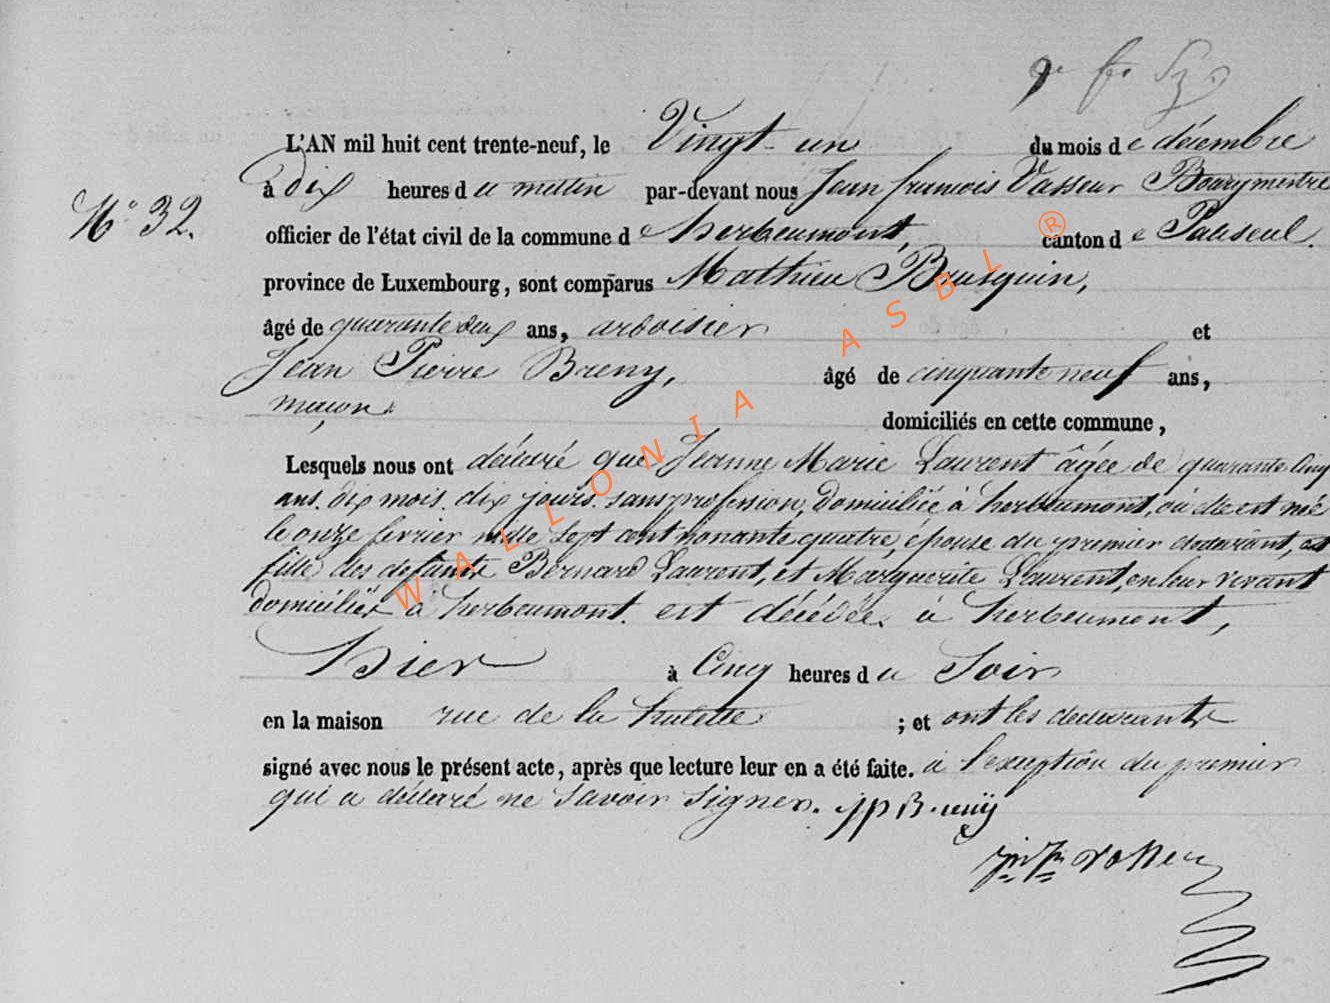 L'AN mil huit cent trente-neuf, le Vingt-un du mois de décembre
à dix heures du mattin par-devant nous Jean francois Vasseur Bourgmestre
N° 32.
officier de l'état civil de la commune de herbeumont, canton de Paliseul.
province de Luxembourg, sont comparus Mathieu Brusquin,
âgé de quarante deux ans, ardoisier et
Jean Pierre Breny, âgé de cinquante neuf ans,
maçon domiciliés en cette commune,
Lesquels nous ont déclaré que Jeanne Marie Laurent âgée de quarante cinq
ans. dix mois. dix jours. sans profession, domiciliée à herbeumont, où elle est née
le onze fevrier mille sept cent nonante quatre, épouse du premier declarant, et
fille des defunts Bernard Laurent, et Marguerite Laurent, en leur vivant
domiciliés à herbeumont. est décédée à herbeumont,
hier à Cinq heures du Soir
en la maison rue de la hulette ; et ont les declarants
signé avec nous le présent acte, après que lecture leur en a été faite. à l'exception du premier
qui a déclaré ne savoir signer. JP Breny
WALLONIA ASBL ®